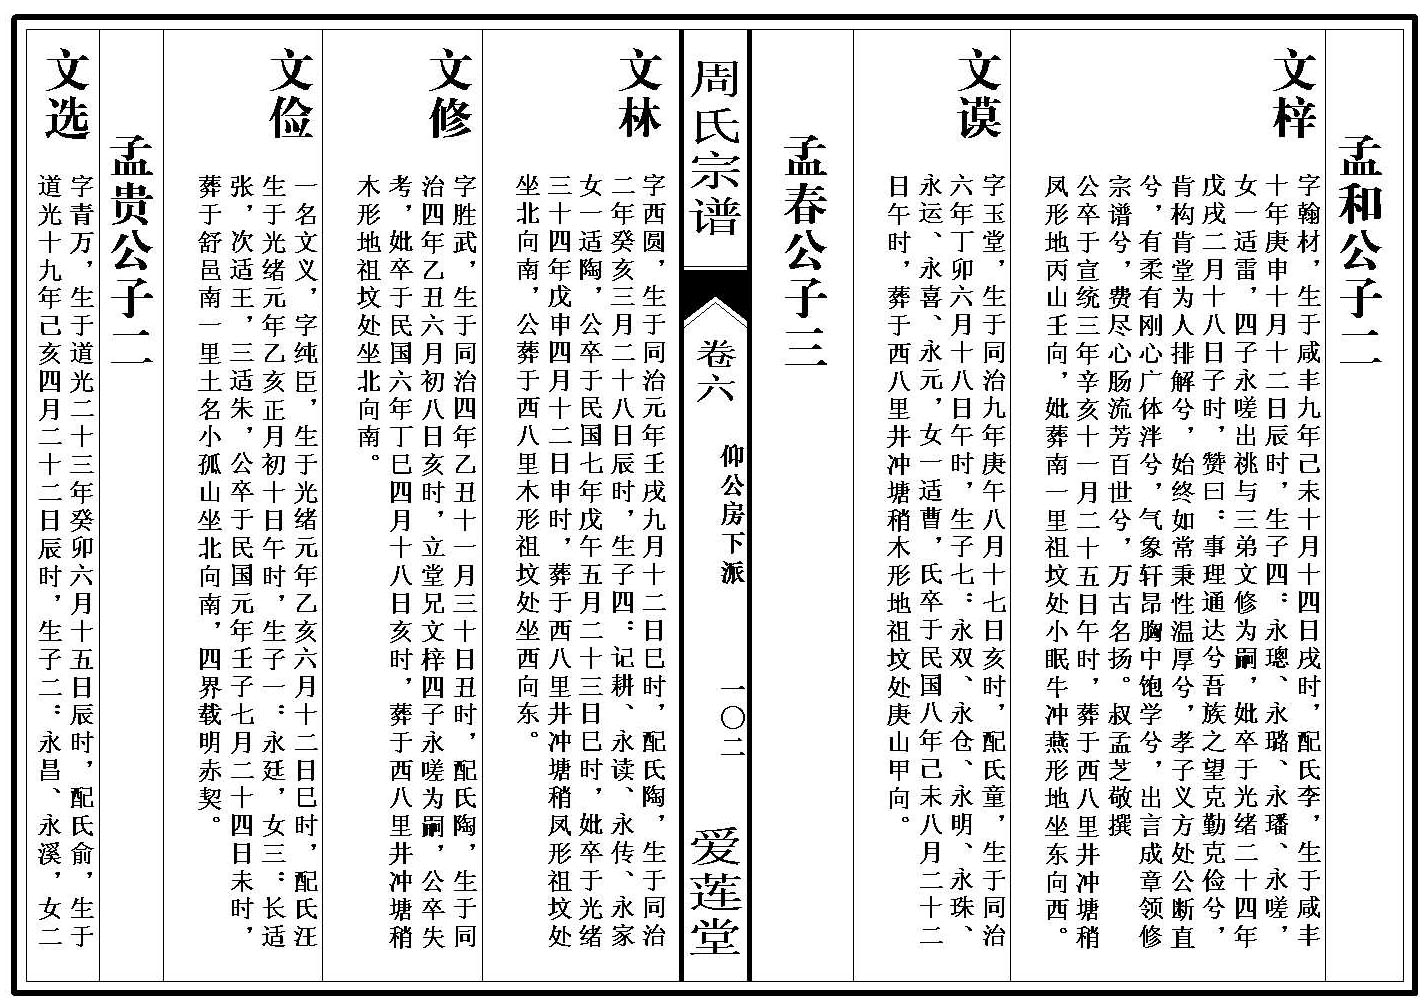 孟和公子二
文梓
字翰材，生于咸丰九年己未十月十四日戌时，配氏李，生于咸丰
十年庚申十月十二日辰时，生子四：永璁、永璐、永璠、永嗟，
女一适雷，四子永嗟出祧与三弟文修为嗣，妣卒于光绪二十四年
戊戌二月十八日子时，赞曰：事理通达兮吾族之望克勤克俭兮，
肯构肯堂为人排解兮，始终如常秉性温厚兮，孝子义方处公断直
兮，有柔有刚心广体泮兮，气象轩昂胸中饱学兮，出言成章领修
宗谱兮，费尽心肠流芳百世兮，万古名扬。叔孟芝敬撰
公卒于宣统三年辛亥十一月二十五日午时，葬于西八里井冲塘稍
凤形地丙山壬向，妣葬南一里祖坟处小眠牛冲燕形地坐东向西。
文谟
字玉堂，生于同治九年庚午八月十七日亥时，配氏童，生于同治
六年丁卯六月十八日午时，生子七：永双、永仓、永明、永珠、
永运、永喜、永元，女一适曹，氏卒于民国八年己未八月二十二
日午时，葬于西八里井冲塘稍木形地祖坟处庚山甲向。
孟春公子三
周氏宗谱
卷六
仰公房下派
一〇二
爱莲堂
文林
字西圆，生于同治元年壬戌九月十二日巳时，配氏陶，生于同治
二年癸亥三月二十八日辰时，生子四：记耕、永读、永传、永家
女一适陶，公卒于民国七年戊午五月二十三日巳时，妣卒于光绪
三十四年戊申四月十二日申时，葬于西八里井冲塘稍凤形祖坟处
坐北向南，公葬于西八里木形祖坟处坐西向东。
文修
字胜武，生于同治四年乙丑十一月三十日丑时，配氏陶，生于同
治四年乙丑六月初八日亥时，立堂兄文梓四子永嗟为嗣，公卒失
考，妣卒于民国六年丁巳四月十八日亥时，葬于西八里井冲塘稍
木形地祖坟处坐北向南。
文俭
一名文义，字纯臣，生于光绪元年乙亥六月十二日巳时，配氏汪
生于光绪元年乙亥正月初十日午时，生子一：永廷，女三：长适
张，次适王，三适朱，公卒于民国元年壬子七月二十四日未时，
葬于舒邑南一里土名小孤山坐北向南，四界载明赤契。
孟贵公子二
文选
字青万，生于道光二十三年癸卯六月十五日辰时，配氏俞，生于
道光十九年己亥四月二十二日辰时，生子二：永昌、永溪，女二